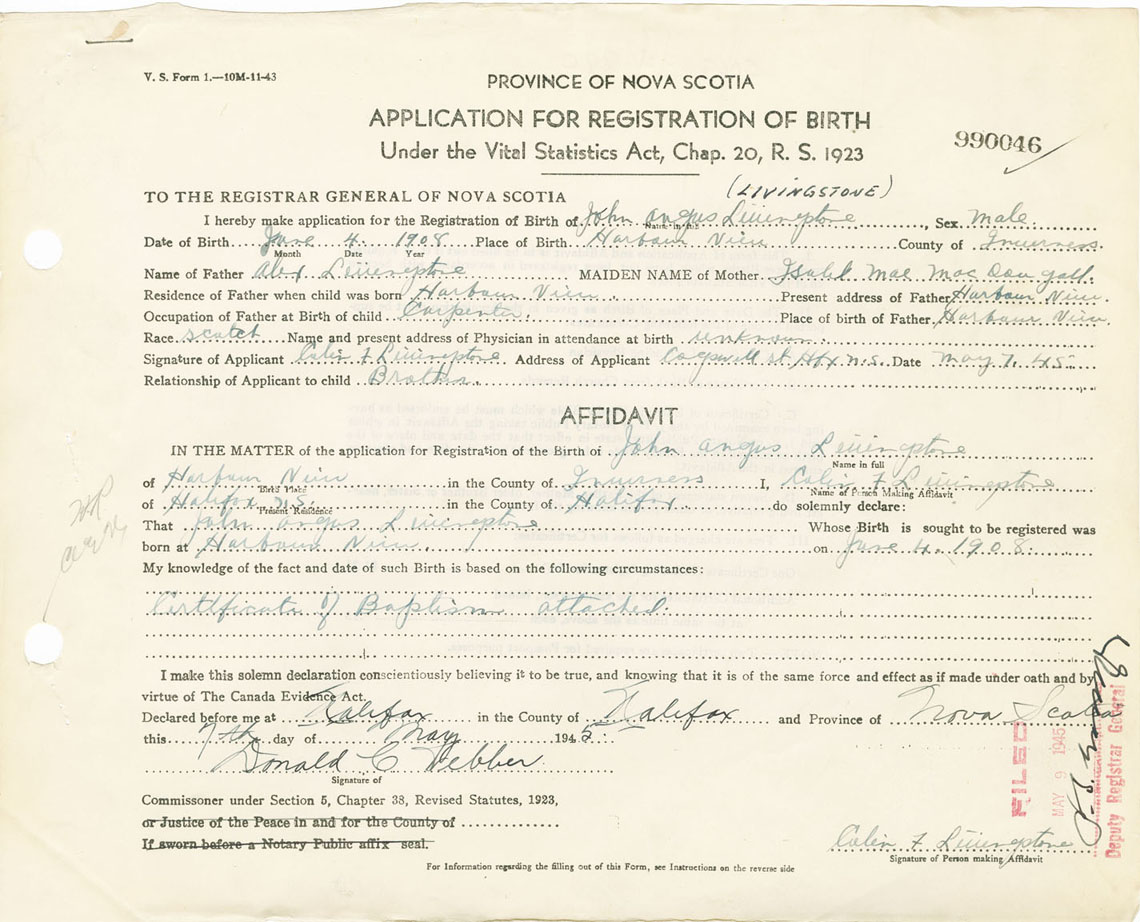 V. S. Form 1.—10M-11-43
PROVINCE OF NOVA SCOTIA
APPLICATION FOR REGISTRATION OF BIRTH
990046
Under the Vital Statistics Act, Chap. 20, R. S. 1923
(LIVINGSTONE)
TO THE REGISTRAR GENERAL OF NOVA SCOTIA
I hereby make application for the Registration of Birth of John Angus Livingstone, Sex male
Name in full
Date of Birth June 4 1908 Place of Birth Harbour View County of Inverness.
Month Date Year
Name of Father Alex Livingstone MAIDEN NAME of Mother Isabel Mae MacDougall.
Residence of Father when child was born Harbour View. Present address of Father Harbour View.
Occupation of Father at Birth of child Carpenter. Place of birth of Father Harbour View.
Race scotch Name and present address of Physician in attendance at birth unknown.
Signature of Applicant Colin F Livingstone. Address of Applicant Cogswell st. Hfx N.S. Date May 7. 45
Relationship of Applicant to child Brother.
AFFIDAVIT
IN THE MATTER of the application for Registration of the Birth of John Angus Livingstone
Name in full
of Harbour View in the County of Inverness I, Colin F Livingstone
Birth Place Name of Person Making Affidavit
of Halifax N.S. in the County of Halifax do solemnly declare:
Present Residence
That John Angus Livingstone Whose Birth is sought to be registered was
born at Harbour View. on June 4. 1908.
My knowledge of the fact and date of such Birth is based on the following circumstances:
Certificate of Baptism attached.
I make this solemn declaration conscientiously believing it to be true, and knowing that it is of the same force and effect as if made under oath and by
virtue of The Canada Evidence Act.
Declared before me at Halifax in the County of Halifax and Province of Nova Scotia
this 7th day of May 1945
Donald C Webber
Signature of
Commissioner under Section 5, Chapter 38, Revised Statutes, 1923,
or Justice of the Peace in and for the County of
If sworn before a Notary Public affix seal.
Colin F Livingstone
Signature of Person making Affidavit
For Information regarding the filling out of this Form, see Instructions on the reverse side
FILED
MAY 9 1945
Deputy Registrar General